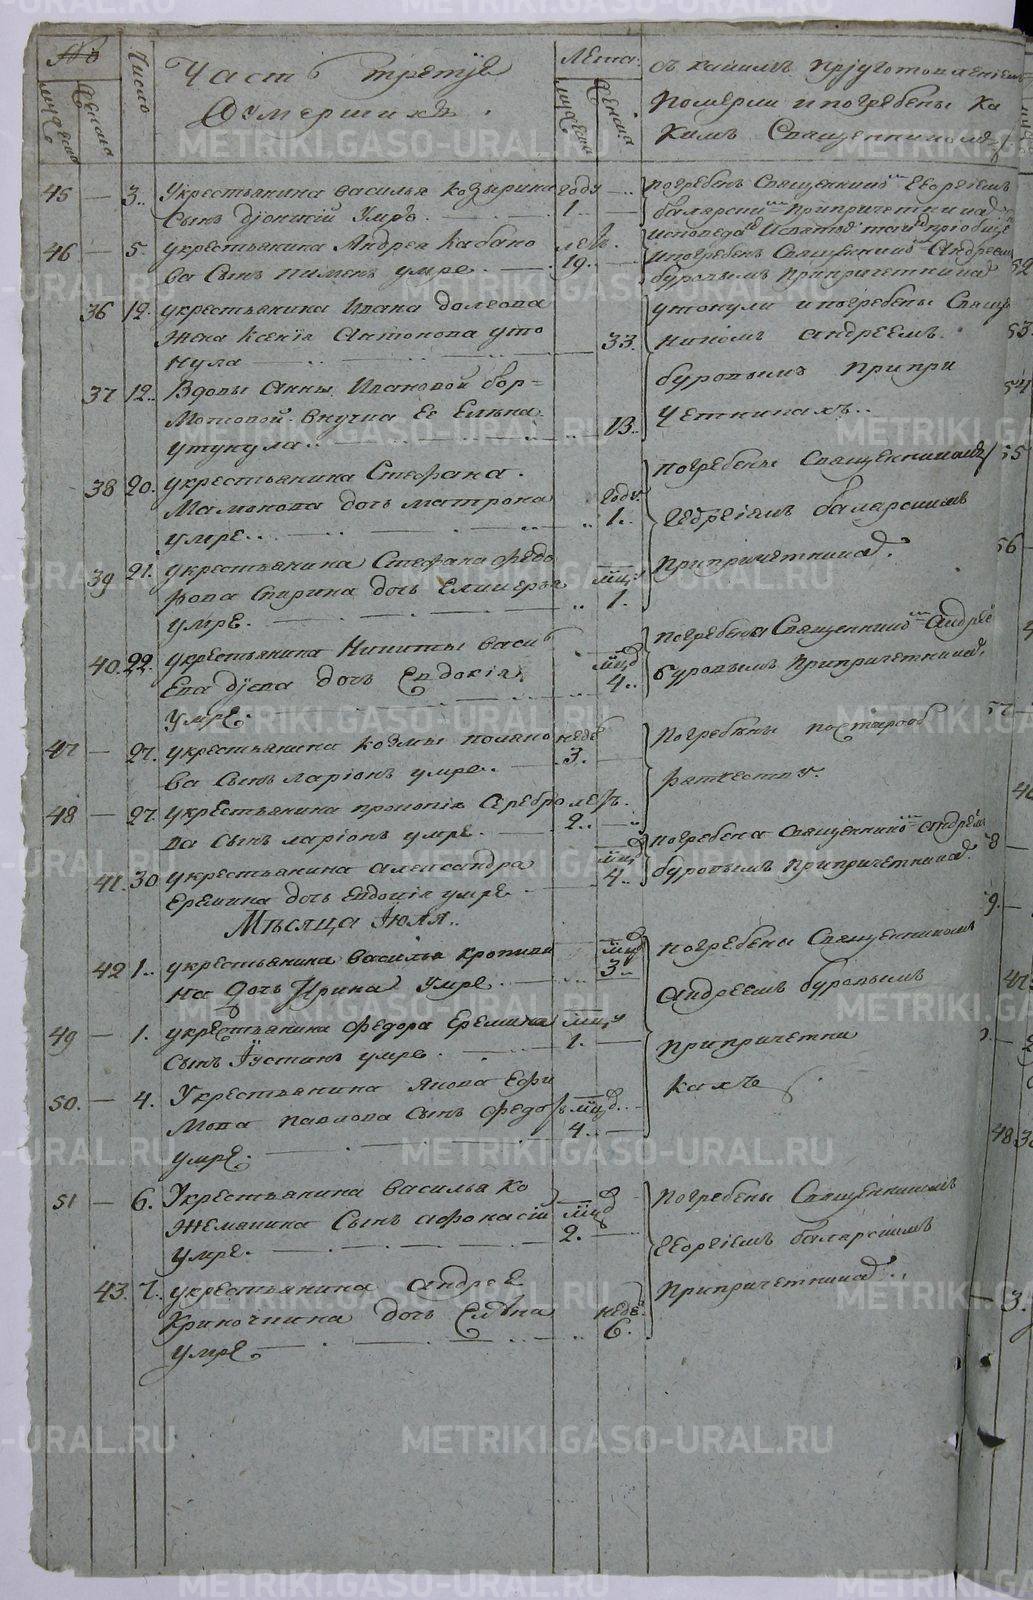 №
мужеска
женска
Число
Часть третія
О умершихъ.
Лета.
мужеска
женска
съ какимъ пріуготовленіемъ
померли и погребены ка
кимъ Священникомъ
45 — 3. У крестьянина василья козырина году
Сынъ Діонисій умре. 1.
погребенъ Священникомъ Егоргіемъ
баларскимъ при причетникахъ
46 — 5. у крестьянина Андрея Кабано летъ.
ва Сынъ пименъ умре. 19.
исповеданъ и Святыхъ таинъ
и погребенъ Священникомъ Андреемъ
буровымъ при причетникахъ
36 12. у крестьянина Ивана долгова
Жена Ксенія Антонова уто
нула 33.
утонули и погребены Свяще
никомъ андреемъ
буровымъ при при
четникахъ..
37 12. Вдовы Анны Ивановой бор=
мотовой внучка Ее Елена
утунула 13.
38 20. у крестьянина Стефана
Мамонова дочь матрона году
умре. 1.
погребены Священникомъ
Георгіемъ баларскимъ
при причетникахъ.
39 21. у крестьянина Стефана федо
рова Спирина дочь Гликерья мцъ
умре. 1.
40. 22. у крестьянина Никиты васи
Евдокія мцъ
умре. 4.
погребены Священникомъ Андрее
буровымъ при причетникахъ.
47 — 27. у крестьянина козмы поляко неде
ва Сынъ ларіонъ умре. 3.
погребены по старооб
рятчеству.
48 — 27. у крестьянина прокопія Серебро летъ.
ва Сынъ ларіонъ умре. 2.
41. 30 у крестьянина александра мцъ
Еремина дочь Евдокія умре 4.
погребена Священникомъ андреемъ
буровымъ при причетникахъ.
Мѣсяца Іюля..
42 1. у крестьянина василья кропиви мцъ
на дочь Ирина умре. 3.
погребены Священникомъ
андреемъ буровымъ
при причетни
кахъ
49 — 1. у крестьянина федора Еремина мцъ
сынъ Іустинъ умре. 1.
50. — 4. У крестьянина якова Ефи
мова павлова Сынъ федоръ мцъ.
умре. 4.
51 — 6. У крестьянина василья ко
жемякина Сынъ афонасій мцъ
умре. 2.
погребены Священникомъ
Егоргіемъ баларскимъ
при причетникахъ..
43. 7. у крестьянина андрея
Кривочкина дочь Елена неде.
умре. 6.
METRIKI.GASO-URAL.RU